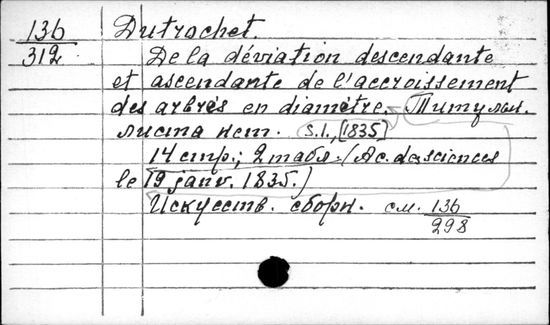 136
312
Dutrochet.
De la déviation descendante
et ascendante de l'accroissement
des arbres en diamètre. Титульн.
листа нет. s.l., [1835]
14 стр.; 2 табл. (Ac. des sciences
le 19 janv. 1835.)
Искусств. сборн. см. 136
298